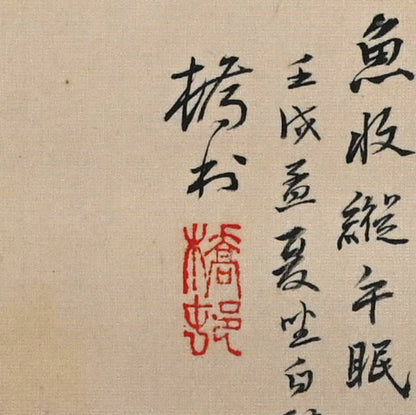 魚收縱午眠
壬戌孟夏坐白
橋村
橋邨